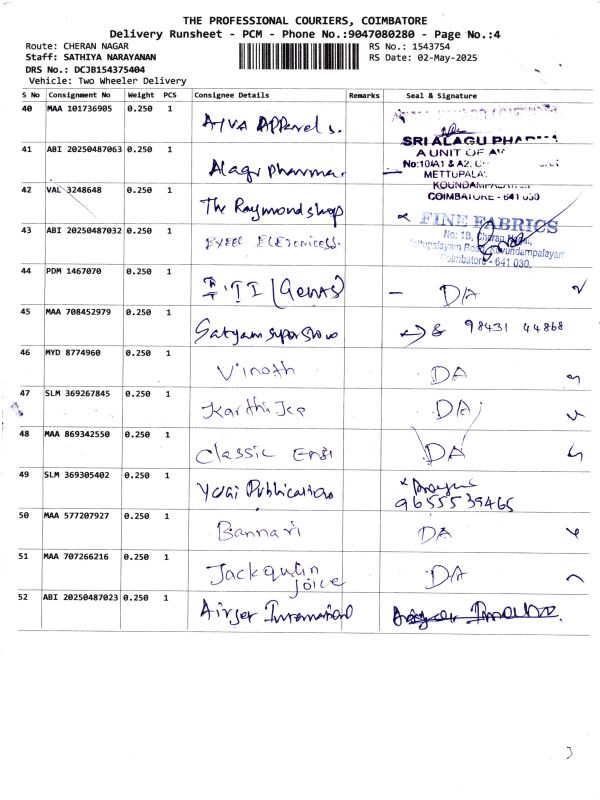 THE PROFESSIONAL COURIERS, COIMBATORE
Delivery Runsheet - PCM - Phone No.:9047080280 - Page No.:4
Route: CHERAN NAGAR RS No.: 1543754
Staff: SATHIYA NARAYANAN RS Date: 02-May-2025
DRS No.: DCJB154375404
Vehicle: Two Wheeler Delivery
S No Consignment No Weight PCS Consignee Details Remarks Seal & Signature
40 MAA 101736905 0.250 1 Aiva Apparels.
SRI ALAGU PHARMA
41 ABI 20250487063 0.250 1 Alagu pharma. A UNIT OF
No:10A1 & A2.
METTUPALA
42 VAL 3248648 0.250 1 The Raymond shop KOUNDAMPALAYAM
COIMBATORE - 641 030
FINE FABRICS
43 ABI 20250487032 0.250 1 Excel Electronices. No: 1B, Cheran
Mettupalayam Road, Kavundampalayam
Coimbatore - 641 030.
44 PDM 1467070 0.250 1 ITI (Genus) - DA
45 MAA 708452979 0.250 1 Satyam super 98431 44868
46 MYD 8774960 0.250 1 Vinoth DA
47 SLM 369267845 0.250 1 Karthi DA
48 MAA 869342550 0.250 1 Classic Engi DA
49 SLM 369305402 0.250 1 Yugi Publications 9655539465
50 MAA 577207927 0.250 1 Bannari DA
51 MAA 707266216 0.250 1 Jackqulin joice DA
52 ABI 20250487023 0.250 1 International
3